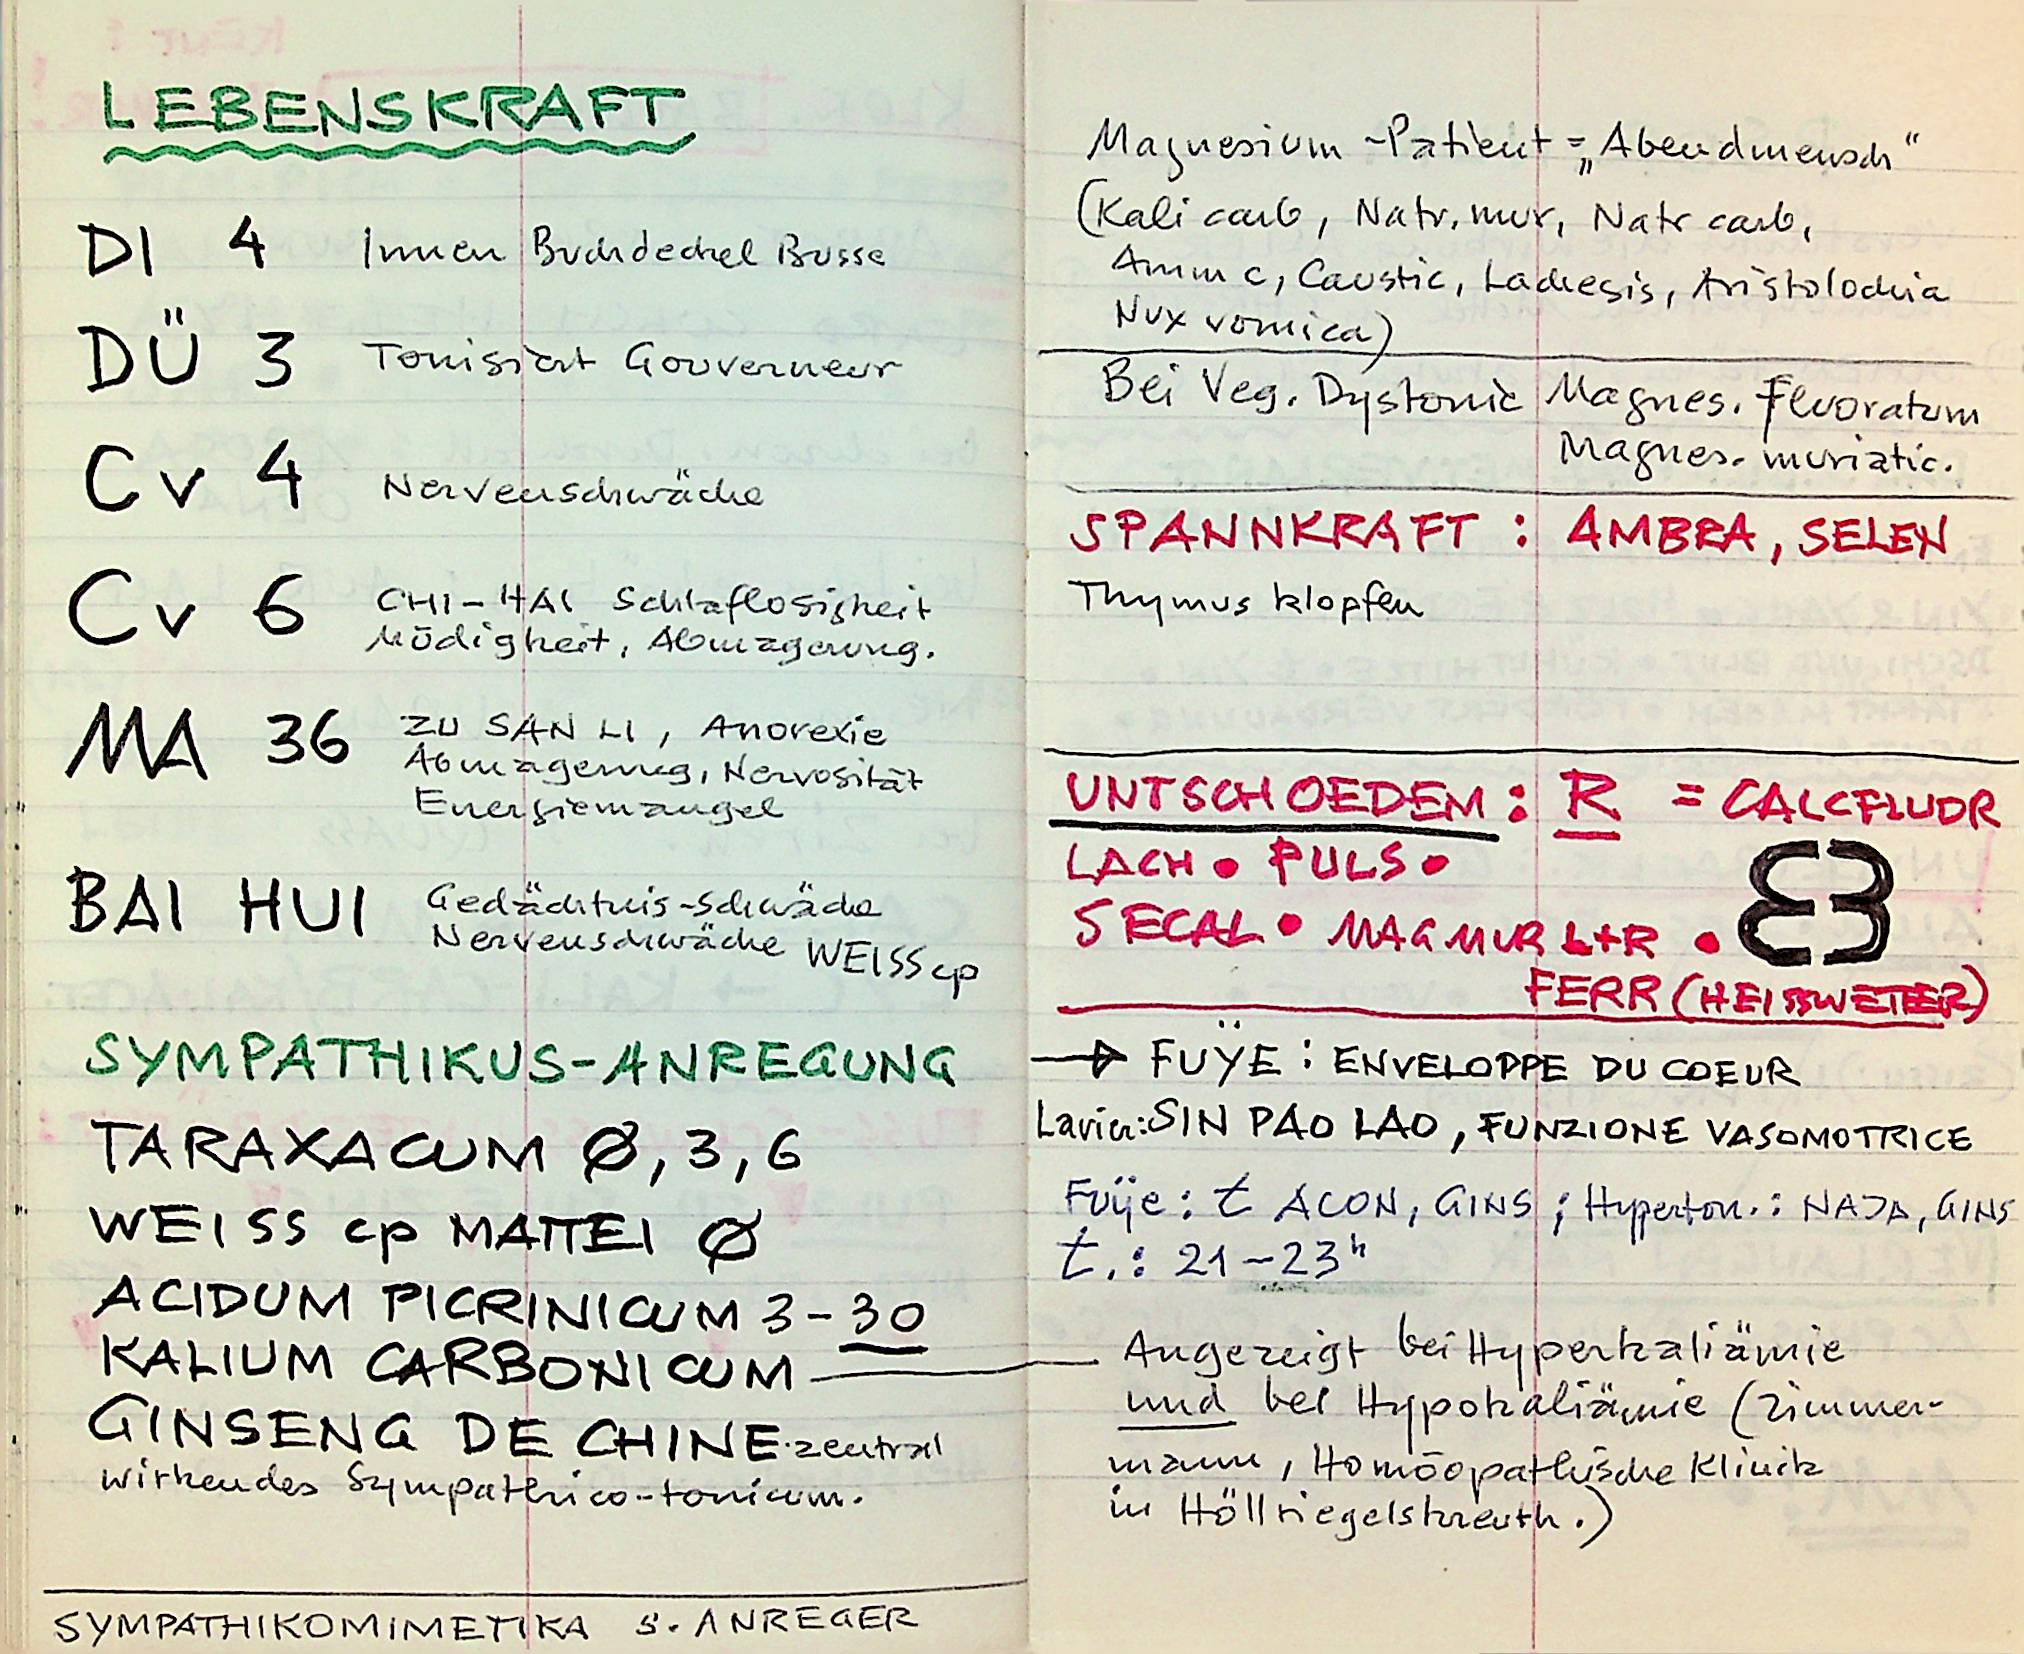 LEBENSKRAFT
DI 4 Innen Buchdeckel Busse
DÜ 3 Tonisiert Gouverneur
Cv 4 Nervenschwäche
Cv 6 CHI-HAI Schlaflosigkeit
Müdigkeit, Abmagerung.
MA 36 ZU SAN LI, Anorexie
Abmagerung, Nervosität
Energiemangel
BAI HUI Gedächtnis-schwäche
Nervenschwäche WEISS cp
SYMPATHIKUS-ANREGUNG
TARAXACUM Ø, 3, 6
WEISS cp MATTEI Ø
ACIDUM PICRINICUM 3-30
KALIUM CARBONICUM
GINSENG DE CHINE zentral
wirkendes Sympathico-tonicum.
SYMPATHIKOMIMETIKA S. ANREGER
Magnesium-Patient = „Abendmensch"
(Kali carb, Natr. mur, Natr carb,
Amm c, Caustic, Lachesis, Aristolochia
Nux vomica)
Bei Veg. Dystonie Magnes. Fluoratum
Magnes. muriatic.
SPANNKRAFT: AMBRA, SELEN
Thymus klopfen
UNTSCHOEDEM: R = CALCFLUOR
LACH • PULS •
SECAL • MAG MUR L+R •
FERR (HEISSWETTER)
→ FUŸE: ENVELOPPE DU COEUR
Lavier: SIN PAO LAO, FUNZIONE VASOMOTRICE
Fuÿe: t ACON, GINS; Hyperton.: NAJA, GINS
t.: 21-23h
Angezeigt bei Hyperkaliämie
und bei Hypokaliämie (Zimmer-
mann, Homöopathische Klinik
in Höllriegelskreuth.)